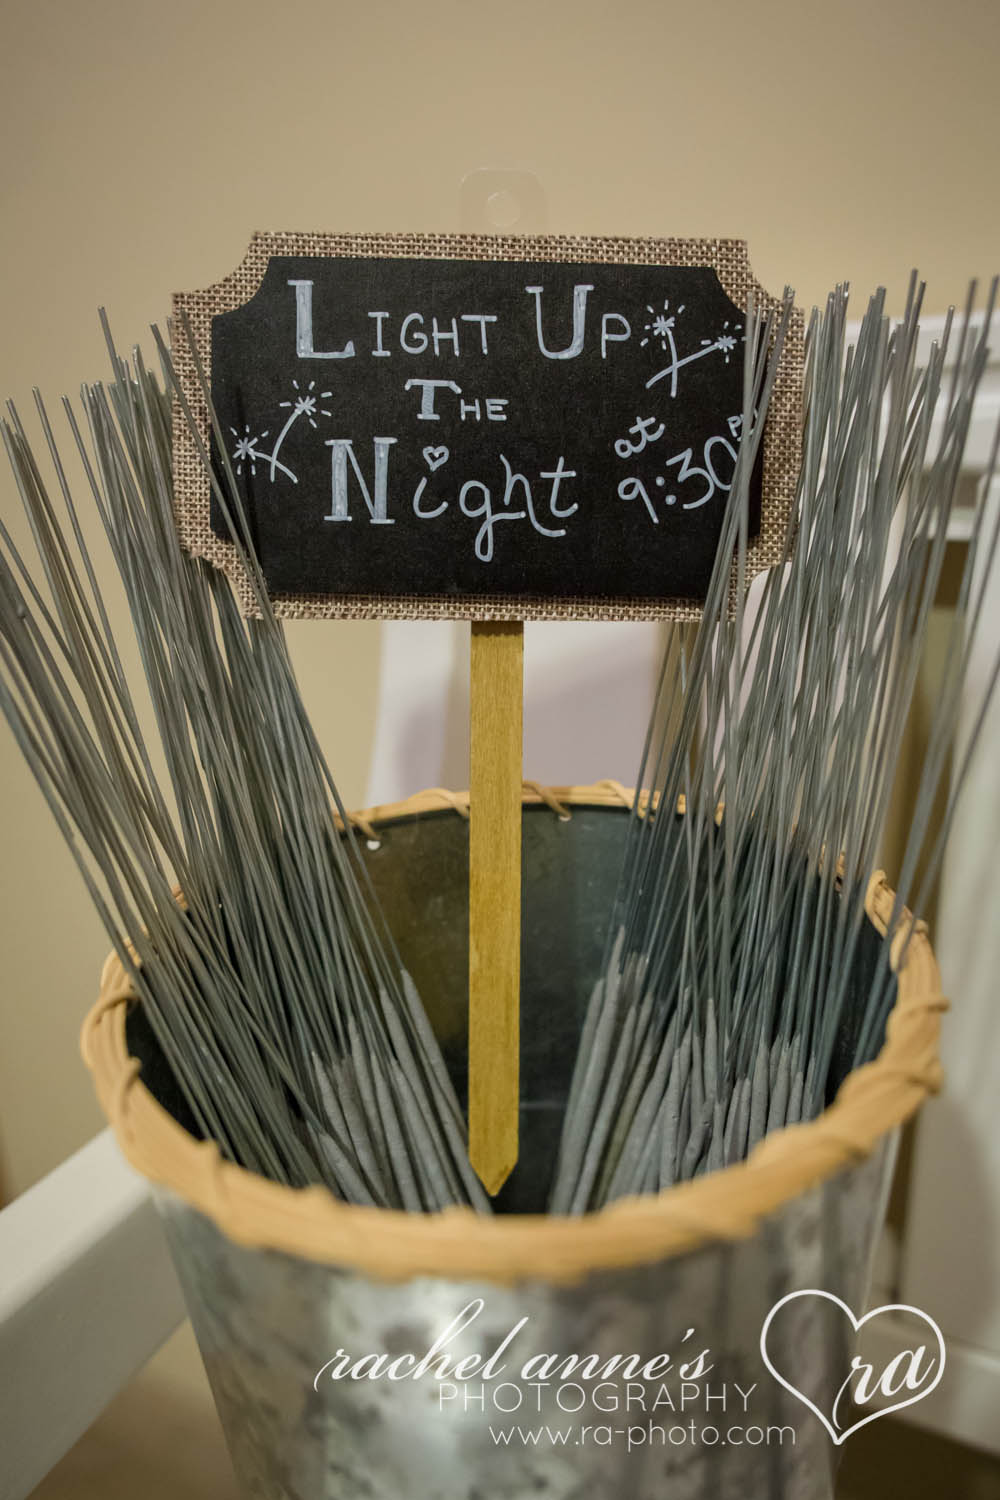 LIGHT UP
THE
Night
at
9:30 PM
rachel anne's
PHOTOGRAPHY
www.ra-photo.com
ra